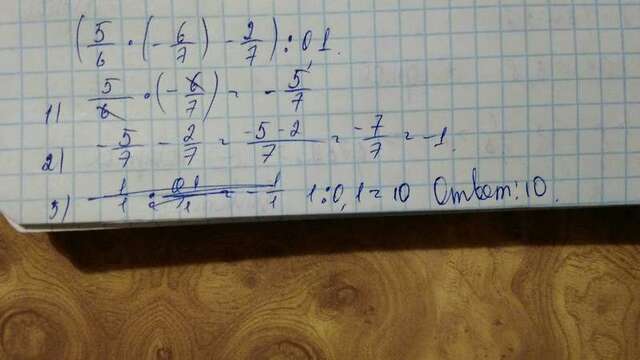 (5/6 · (- 6/7) - 2/7) : 0 1.
1) 5/6 · (- 6/7) = - 5/7
2) - 5/7 - 2/7 = -5 - 2/7 = -7/7 = -1.
3) 1 : 0,1 = 10 Ответ: 10.